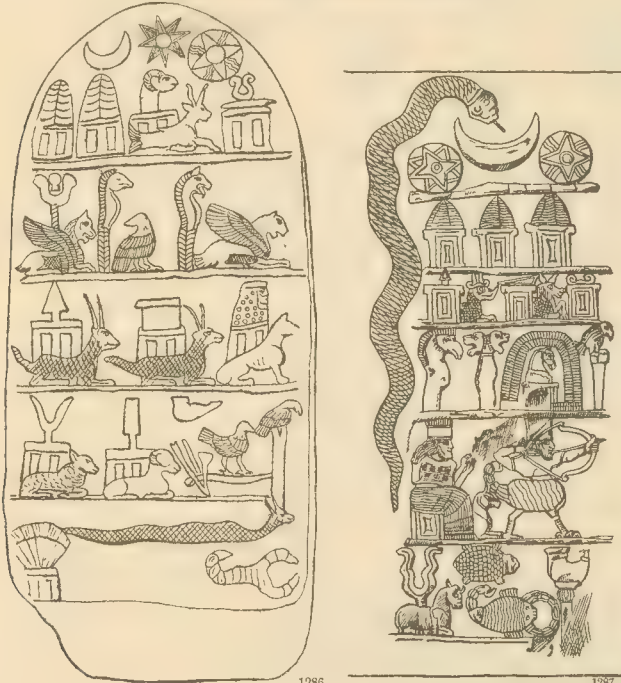 1286
1287